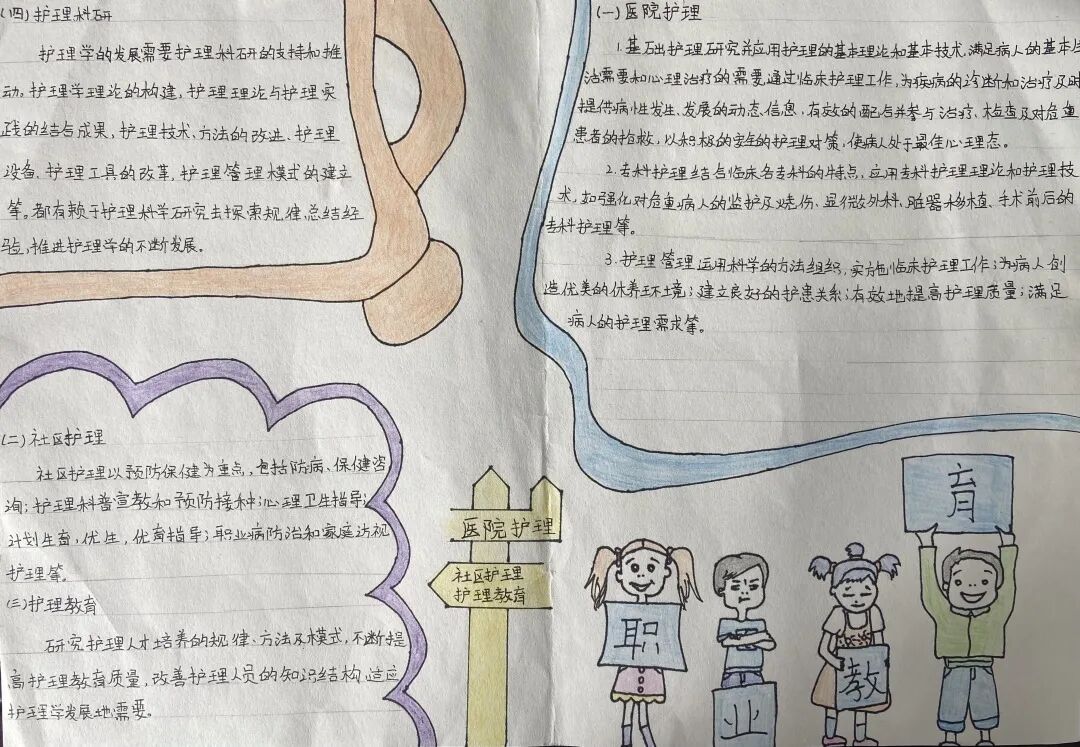 (一)医院护理
1.基础护理研究并应用护理的基本理论和基本技术,满足病人的基本生
活需要和心理治疗的需要通过临床护理工作,为疾病的诊断和治疗及时
提供病性发生、发展的动态信息,有效的配合并参与治疗、检查及对危重
患者的抢救,以积极的安全的护理对策,使病人处于最佳心理态。
2.专科护理结合临床各专科的特点,应用专科护理理论和护理技
术,如强化对危重病人的监护及烧伤、显微外科、脏器移植、手术前后的
专科护理等。
3.护理管理运用科学的方法组织,实施临床护理工作;为病人创
造优美的休养环境;建立良好的护患关系;有效地提高护理质量;满足
病人的护理需求等。
(二)社区护理
社区护理以预防保健为重点,包括防病、保健咨
询;护理科普宣教和预防接种;心理卫生指导;
计划生育,优生,优育指导;职业病防治和家庭访视
护理等。
(三)护理教育
研究护理人才培养的规律、方法及模式,不断提
高护理教育质量,改善护理人员的知识结构,适应
护理学发展地需要。
(四)护理科研
护理学的发展需要护理科研的支持和推
动。护理学理论的构建,护理理论与护理实
践的结合成果,护理技术、方法的改进、护理
设备、护理工具的改革,护理管理模式的建立
等。都有赖于护理科学研究去探索规律、总结经
验,推进护理学的不断发展。
医院护理
社区护理
护理教育
职
业
教
育